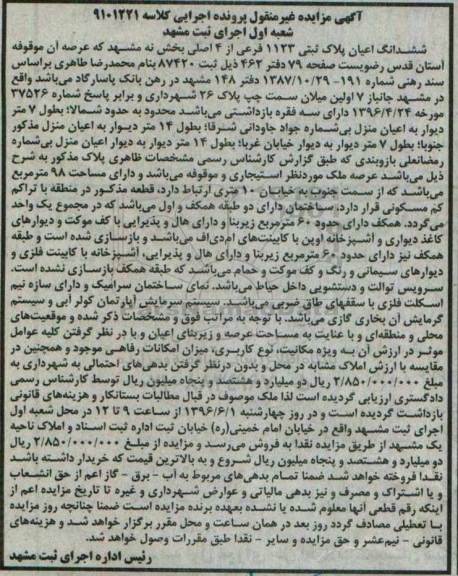 آگهی مزایده غیرمنقول پرونده اجرایی کلاسه ۹۱۰۱۲۲۱
شعبه اول اجرای ثبت مشهد
ششدانگ اعیان پلاک ثبتی ۱۱۲۳ فرعی از ۴ اصلی بخش نه مشهد که عرصه آن موقوفه
آستان قدس رضویست صفحه ۷۹ دفتر ۴۶۲ ذیل ثبت ۸۷۴۲۰ بنام محمدرضا طاهری براساس
سند رهنی شماره ۱۹۱- ۱۳۸۷/۱۰/۲۹ دفتر ۱۴۸ مشهد در رهن بانک پاسارگاد می‌باشد واقع
در مشهد جانباز ۷ اولین میلان سمت چپ پلاک ۲۶ شهرداری و برابر پاسخ شماره ۳۷۵۲۶
مورخه ۱۳۹۶/۴/۲۴ دارای سه فقره بازداشتی می‌باشد محدود به حدود شمالا: بطول ۷ متر
دیوار به اعیان منزل بی‌شماره جواد جاودانی شرقا: بطول ۱۴ متر دیوار به اعیان منزل مذکور
جنوبا: بطول ۷ متر دیوار به دیوار خیابان غربا: بطول ۱۴ متر دیوار به دیوار اعیان منزل بی‌شماره
رمضانعلی بازوبندی که طبق گزارش کارشناس رسمی مشخصات ظاهری پلاک مذکور به شرح
ذیل می‌باشد عرصه ملک موردنظر استیجاری و موقوفه می‌باشد و دارای مساحت ۹۸ مترمربع
می‌باشد که از سمت جنوب به خیابان ۱۰ متری ارتباط دارد، قطعه مذکور در منطقه با تراکم
کم مسکونی قرار دارد. ساختمان دارای دو طبقه همکف و اول می‌باشد که در مجموع یک واحد
می‌گردد. همکف دارای حدود ۶۰ مترمربع زیربنا و دارای هال و پذیرایی با کف موکت و دیوارهای
کاغذ دیواری و آشپزخانه اوپن با کابینت‌های ام‌دی‌اف می‌باشد و بازسازی شده است و طبقه
همکف نیز دارای حدود ۶۰ مترمربع زیربنا و دارای هال و پذیرایی، آشپزخانه با کابینت فلزی و
دیوارهای سیمانی و رنگ و کف موکت و حمام می‌باشد که طبقه همکف بازسازی نشده است.
سرویس توالت و دستشویی داخل حیاط می‌باشد. نمای ساختمان سرامیک و دارای سازه نیم
اسکلت فلزی با سقفهای طاق ضربی می‌باشد. سیستم سرمایش آپارتمان کولر آبی و سیستم
گرمایش آن بخاری گازی می‌باشد. با توجه به مراتب فوق و مشخصات ذکر شده و موقعیت‌های
محلی و منطقه‌ای و با عنایت به مساحت عرصه و زیربنای اعیان و با در نظر گرفتن کلیه عوامل
موثر در ارزش آن به ویژه مکانیت، نوع کاربری، میزان امکانات رفاهی موجود و همچنین در
مقایسه با ارزش املاک مشابه در محل و بدون درنظر گرفتن بدهی‌های احتمالی به شهرداری به
مبلغ ۲/۸۵۰/۰۰۰/۰۰۰ ریال دو میلیارد و هشتصد و پنجاه میلیون ریال توسط کارشناس رسمی
دادگستری ارزیابی گردیده است لذا ملک موصوف در قبال مطالبات بستانکار و هزینه‌های قانونی
بازداشت گردیده است و در روز چهارشنبه ۱۳۹۶/۶/۱ از ساعت ۹ تا ۱۲ در محل شعبه اول
اجرای ثبت مشهد واقع در خیابان امام خمینی(ره) خیابان ثبت اداره ثبت اسناد و املاک ناحیه
یک مشهد از طریق مزایده نقدا به فروش می‌رسد و مزایده از مبلغ ۲/۸۵۰/۰۰۰/۰۰۰ ریال
دو میلیارد و هشتصد و پنجاه میلیون ریال شروع و به بالاترین قیمت که خریدار داشته باشد
نقدا فروخته خواهد شد ضمنا تمام بدهی‌های مربوط به آب - برق - گاز اعم از حق انشعاب
و یا اشتراک و مصرف و نیز بدهی مالیاتی و عوارض شهرداری و غیره تا تاریخ مزایده اعم از
اینکه رقم قطعی آنها معلوم شده یا نشده بعهده برنده مزایده است ضمنا چنانچه روز مزایده
با تعطیلی مصادف گردد روز بعد در همان ساعت و محل مقرر برگزار خواهد شد و هزینه‌های
قانونی - نیم‌عشر و حق مزایده و سایر - نقدا طبق مقررات وصول خواهد شد.
رئیس اداره اجرای ثبت مشهد